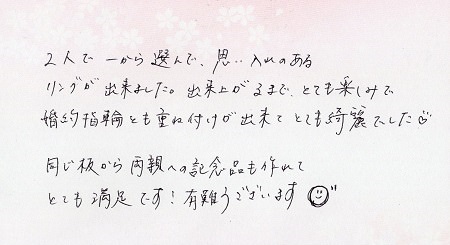 2人で一から選んで、思い入れのある
リングが出来ました。出来上がるまで、とても楽しみで
婚約指輪とも重ね付けが出来てとても綺麗でした
同じ板から両親への記念品も作れて
とても満足です！有難うございます